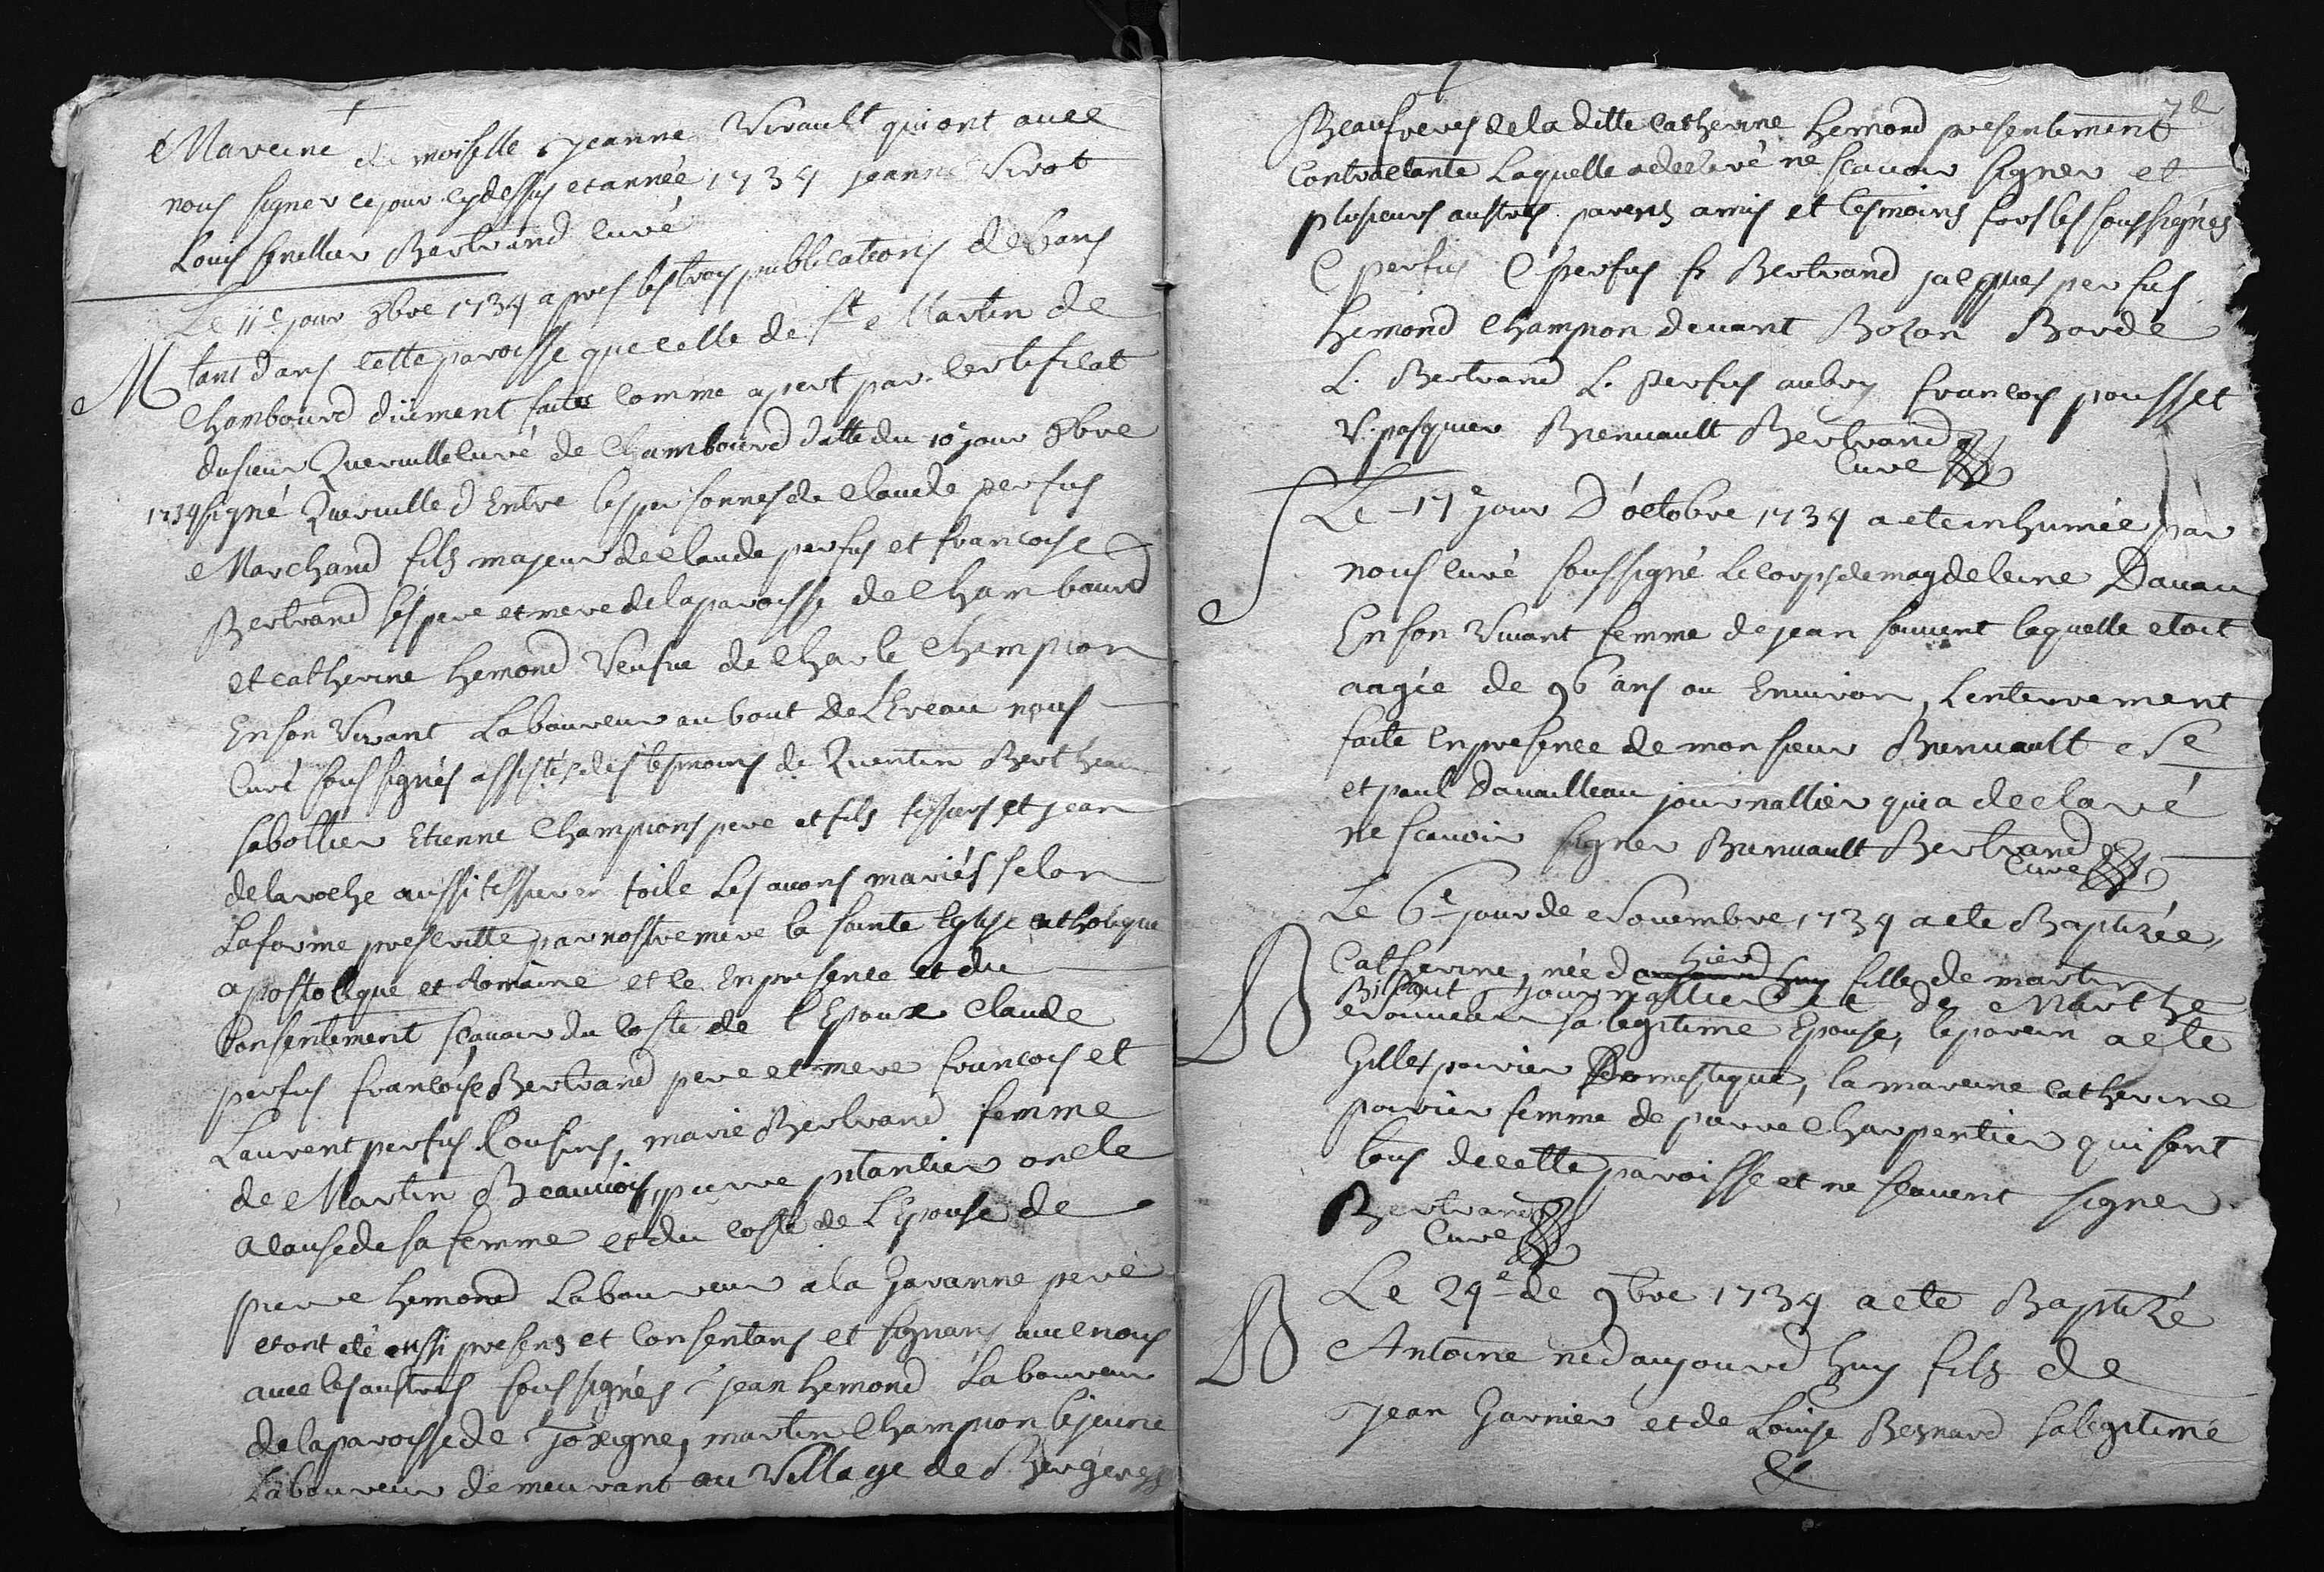 Mareine demoiselle Jeanne Virault qui ont avec
nous signer ce jour cy dessus et année 1734 Jeanne Virot
Louis Bertrand curé
Le 11e jour 8bre 1734 apres les trois publications de bans
M tant dans cette paroisse que celle de St Martin de
Chambourd düement faites comme apert par certificat
du sieur Queruille curé de Chambourd datte du 10e jour 8bre
1734 signé Queruille d Entre les personnes de Claude perfus
Marchand fils majeur de Claude perfus et francoise
Bertrand ses pere et mere de la paroisse de Chambourd
et catherine hemond Veufve de Charle Champion
En son Vivant Laboureur au bout De Lereau nous
Curé soussignés assistés des tesmoins de Quentin Bertheau
sabottier Etienne Champions pere et fils tissiers et jean
de laroche aussi tissier en toile Les avons mariés selon
La forme prescritte par nostre mere la sainte Eglise catholique
apostolique et Romaine et ce En presence et du
Consentement scavoir du coste de l'Epoux Claude
perfus francoise Bertrand pere et mere francois et
Laurent perfus Cousins, marie Bertrand femme
de Martin Beauvois, pierre plantier oncle
a cause de sa femme et du coste de L'Epouse de
pierre hemond Laboureur a la Garanne pere
et ont eté aussi presens et Consentans et signans avec nous
avec les austres soussignés Jean hemond Laboureur
de la paroisse de Joxigne, martin Champion le jeune
Laboureur demeurant au Village de Bergeres
Beaufreres de la ditte catherine hemond presentement
Contractante Laquelle a declaré ne scavoir signer et
plusieurs austres parens amis et tesmoins sous les soussignés
C perfus C perfus fr Bertrand jacques perfus
hemond Champion devant Bozon Barde
L. Bertrand L. perfus aubry francois pousset
V. pasquier Brenuault Bertrand
Curé
S Le 17e jour D'octobre 1734 a ete inhumée par
nous curé soussigné le corps de magdeleine Davau
En son Vivant femme de jean souvent laquelle etoit
aagée de 96 ans ou Environ, Lenterrement
faite En presence de monsieur Brenuault
et paul Davailleau journallier qui a declaré
ne scavoir signer Brenuault Bertrand
Curé
Le 6e jour de Novembre 1734 a ete Baptizée
B Catherine, née d aujourd huy hier fille de martin
Billaut Journallier et de Marthe
sa legitime Epouse, le parein a ete
Gilles poirier Domestique, la mareine catherine
poirier femme de pierre Charpentier qui sont
tous de cette paroisse et ne scavent signer
Bertrand
Curé
Le 24e de 9bre 1734 a ete Baptizé
B Antoine né d aujourd huy fils de
Jean Garnier et de Louise Besnard sa legitime